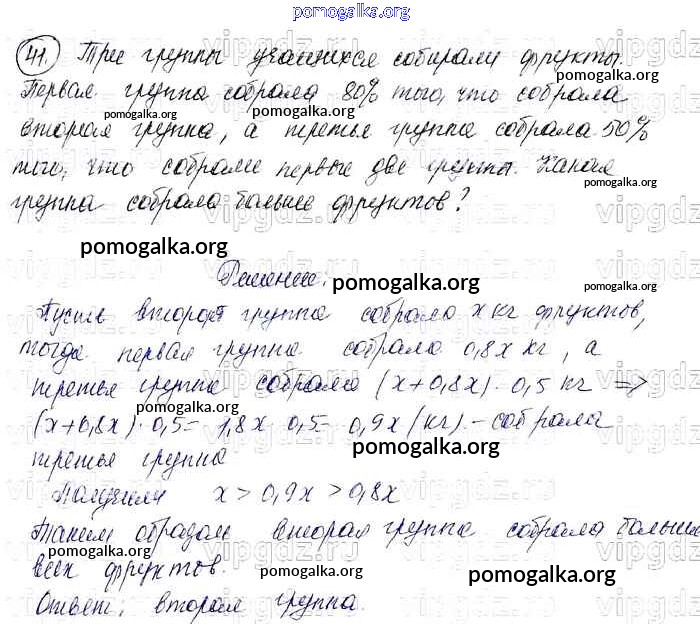 pomogalka.org
41. Три группы учащихся собирали фрукты.
pomogalka.org
Первая группа собрала 80% того, что собрала
pomogalka.org pomogalka.org
вторая группа, а третья группа собрала 50%
того, что собрали первые две группы. Какая
pomogalka.org
группа собрала больше фруктов?
pomogalka.org
Решение.
pomogalka.org
Пусть вторая группа собрала x кг фруктов,
pomogalka.org
тогда первая группа собрала 0,8x кг, а
третья группа собрала (x+0,8x)·0,5 кг =>
pomogalka.org
(x+0,8x)·0,5= 1,8x·0,5= 0,9x (кг).- собрала
pomogalka.org
третья группа
Получили x > 0,9x > 0,8x
pomogalka.org
Таким образом вторая группа собрала больше
pomogalka.org
всех фруктов.
pomogalka.org pomogalka.org
Ответ: вторая группа.
pomogalka.org